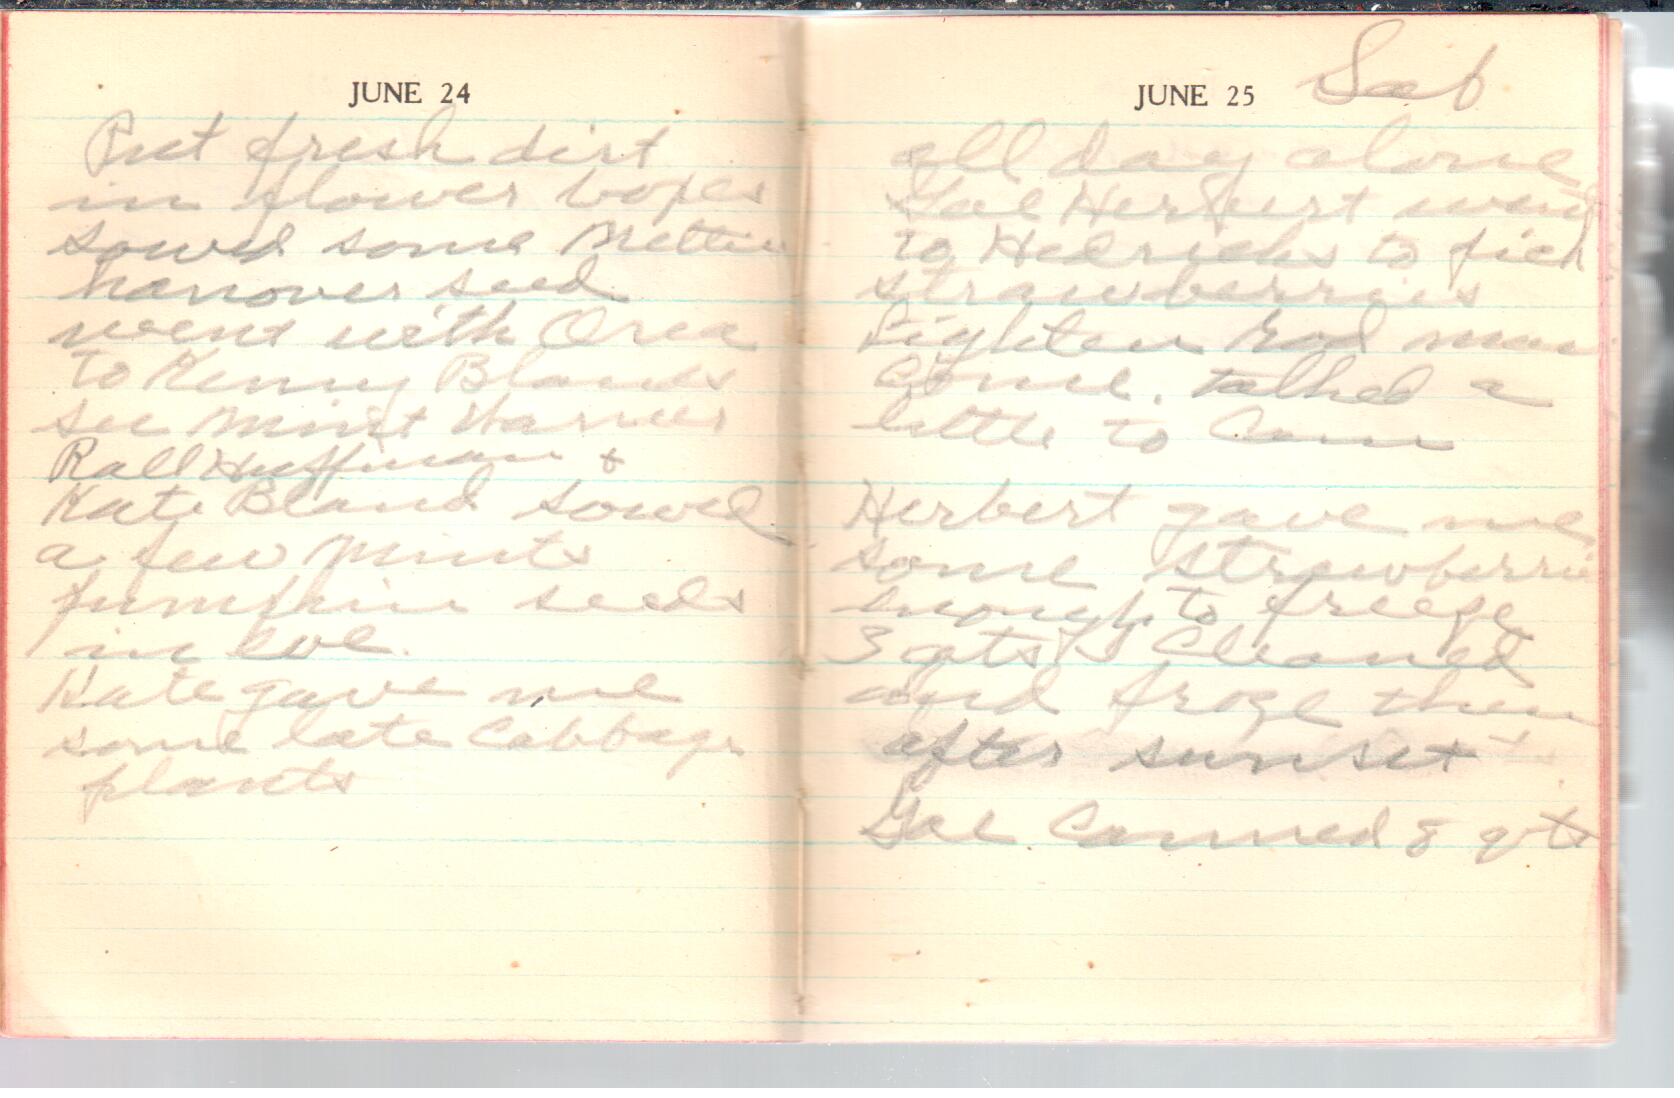 JUNE 24
Put fresh dirt
in flower boxes
sowed some
hanover seed
went with Orea
to Kenny Blands
see Mint Harner
Rall Huffman +
Kate Bland sowed
a few Mints
pumpkin seeds
in eve.
Kate gave me
some late Cabbage
plants
JUNE 25 Sab
all day alone
Gae Herbert went
to Hedricks to pick
strawberries
Lighten Rod man
Come. talked a
little to Cam
Herbert gave me
some strawberries
enough to freeze
3 qts I Cleaned
and froze them
after sunset
Gae Canned 8 qts